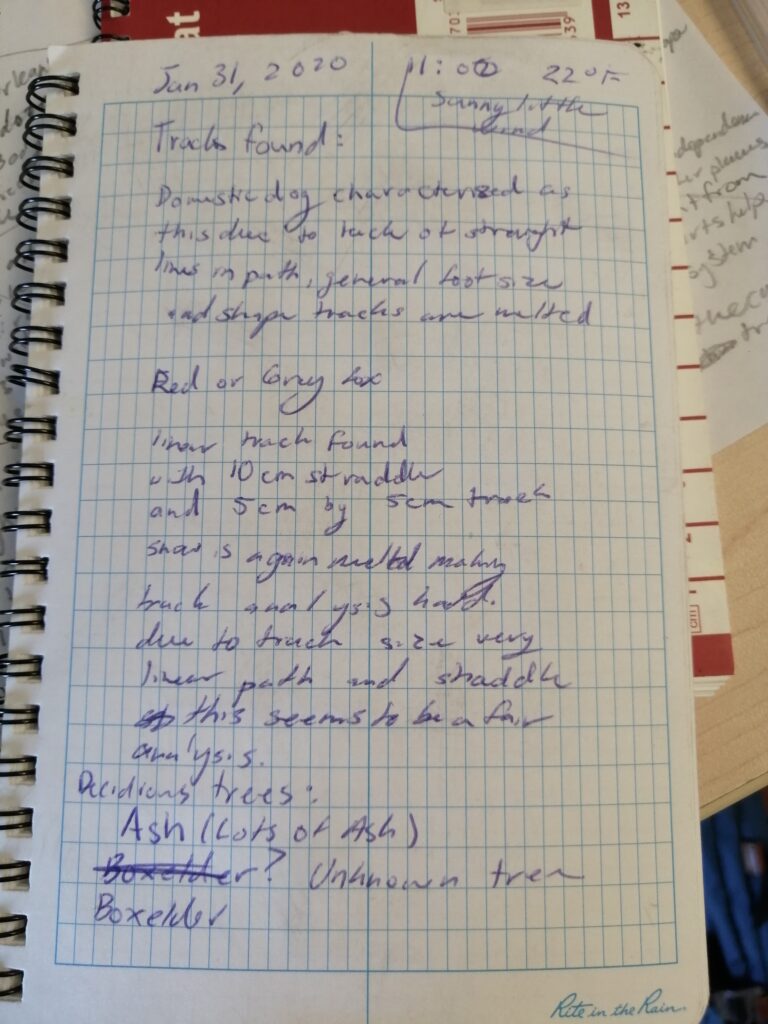 Jan 31, 2020 11:00 22°F
Sunny little
wind
Tracks found:
Domestic dog characterized as
this due to lack of straight
lines in path, general foot size
and shape tracks are melted
Red or Grey fox
linear track found
with 10cm straddle
and 5cm by 5cm track
snow is again melted making
track analysis hard.
due to track size very
linear path and straddle
this seems to be a fair
analysis.
Decidious trees:
Ash (Lots of Ash)
Boxelder? Unknown tree
Boxelder
Rite in the Rain